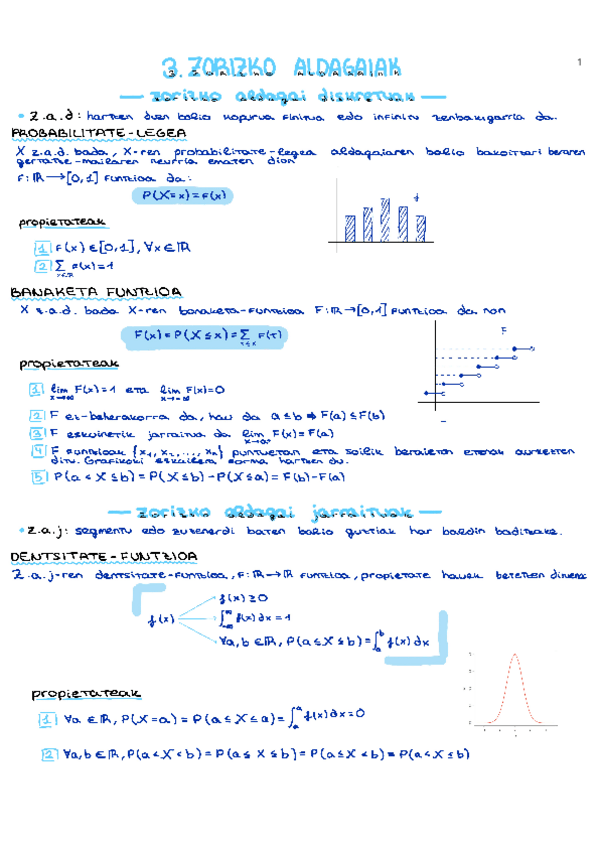 1
3. ZORIZKO ALDAGAIAK
— zorizko aldagai diskretuak —
• z.a.d: hartzen duen balio kopurua finitua edo infinitu zenbakigarria da.
PROBABILITATE-LEGEA
X z.a.d. bada, X-ren probabilitate-legea aldagaiaren balio bakoitzari beraren
gertatze-mailaren neurria ematen dion
f: ℝ → [0,1] funtzioa da:
P(X=x) = f(x)
f
propietateak
1 f(x) ∈ [0,1], ∀x ∈ ℝ
2 ∑ f(x) = 1
x∈ℝ
BANAKETA FUNTZIOA
X z.a.d. bada X-ren banaketa-funtzioa F: ℝ → [0,1] funtzioa da non
F(x) = P(X ≤ x) = ∑ f(t)
t≤x
F
propietateak
1 lim F(x) = 1 eta lim F(x) = 0
x→∞ x→-∞
2 F ez-beherakorra da, hau da a ≤ b ⇒ F(a) ≤ F(b)
3 F eskuinetik jarraitua da lim F(x) = F(a)
x→a⁺
4 F funtzioak {x₁, x₂, ..., xₙ} puntuetan eta soilik beraietan etenak aurkezten
ditu. Grafikoki eskailera forma hartzen du.
5 P(a < X ≤ b) = P(X ≤ b) - P(X ≤ a) = F(b) - F(a)
— zorizko aldagai jarraituak —
• z.a.j: segmentu edo zuzenerdi baten balio guztiak har baldin baditzake.
DENTSITATE-FUNTZIOA
z.a.j-ren dentsitate-funtzioa, f: ℝ → ℝ funtzioa, propietate hauek betetzen dituena
f(x) ≥ 0
f(x) ∫_{-∞}^{∞} f(x) dx = 1
∀a, b ∈ ℝ, P(a ≤ X ≤ b) = ∫_a^b f(x) dx
propietateak
1 ∀a ∈ ℝ, P(X=a) = P(a ≤ X ≤ a) = ∫_a^a f(x) dx = 0
2 ∀a, b ∈ ℝ, P(a < X < b) = P(a ≤ X ≤ b) = P(a ≤ X < b) = P(a < X ≤ b)